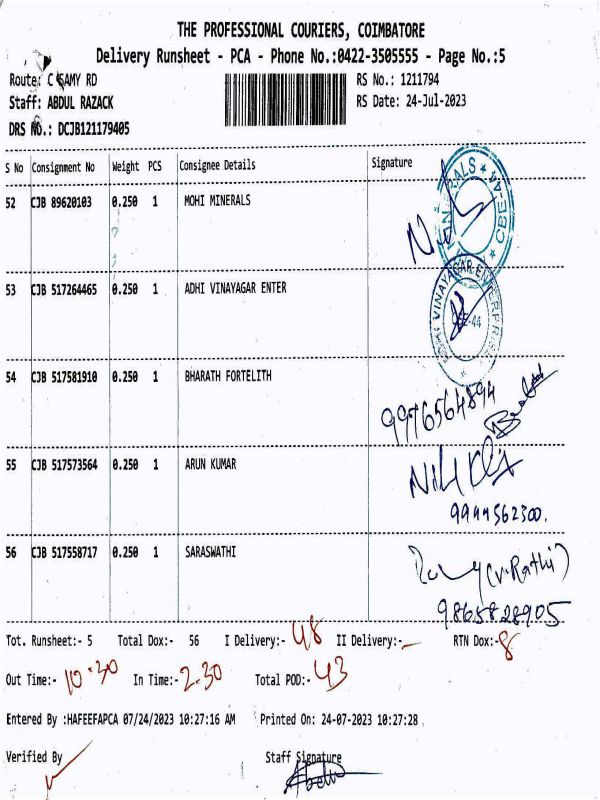 THE PROFESSIONAL COURIERS, COIMBATORE
Delivery Runsheet - PCA - Phone No.:0422-3505555 - Page No.:5
Route: C SAMY RD RS No.: 1211794
Staff: ABDUL RAZACK RS Date: 24-Jul-2023
DRS NO.: DCJB121179405
S No Consignment No Weight PCS Consignee Details Signature
52 CJB 89620103 0.250 1 MOHI MINERALS
53 CJB 517264465 0.250 1 ADHI VINAYAGAR ENTER
VINAYAGAR ENTERPRISES
54 CJB 517581910 0.250 1 BHARATH FORTELITH
9976564894
55 CJB 517573564 0.250 1 ARUN KUMAR
9944562300.
56 CJB 517558717 0.250 1 SARASWATHI
(v.Rathi)
9865828905
Tot. Runsheet:- 5 Total Dox:- 56 I Delivery:- 48 II Delivery:- - RTN Dox:- 8
Out Time:- 10.30 In Time:- 2.30 Total POD:- 43
Entered By :HAFEEFAPCA 07/24/2023 10:27:16 AM Printed On: 24-07-2023 10:27:28
Verified By Staff Signature